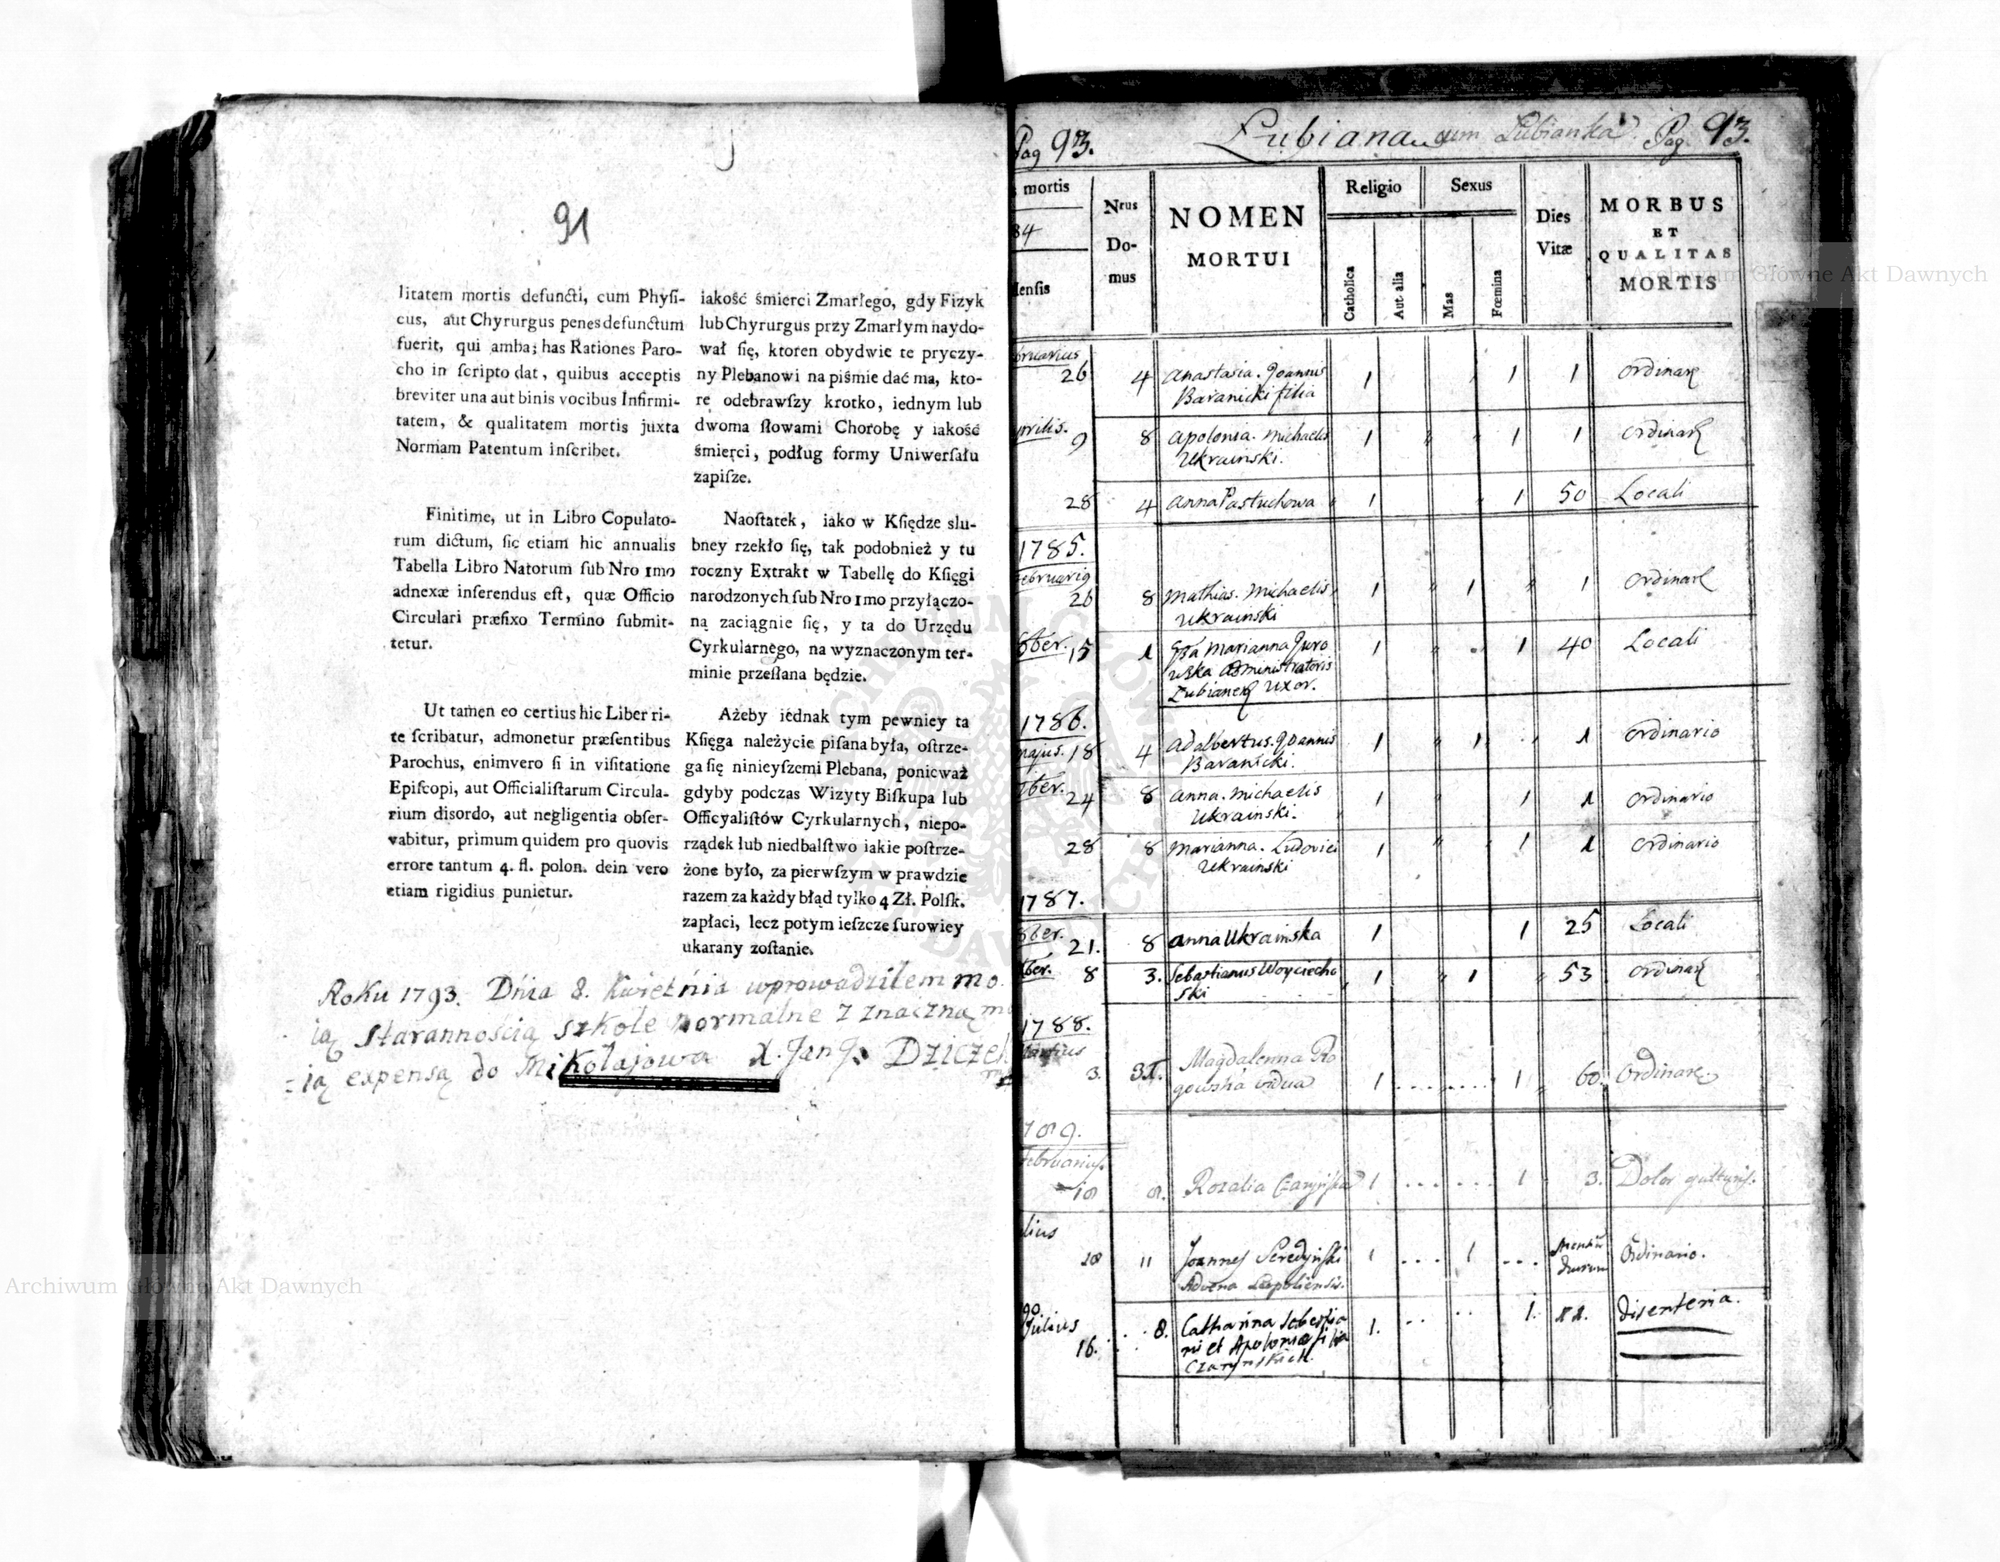 91
litatem mortis defuncti, cum Physi-
cus, aut Chyrurgus penes defunctum
fuerit, qui amba; has Rationes Paro-
cho in scripto dat, quibus acceptis
breviter una aut binis vocibus Infirmi-
tatem, & qualitatem mortis juxta
Normam Patentum inscribet.
Finitime, ut in Libro Copulato-
rum dictum, sic etiam hic annualis
Tabella Libro Natorum sub Nro 1mo
adnexæ inserendus est, quæ Officio
Circulari præfixo Termino submit-
tetur.
Ut tamen eo certius hic Liber ri-
te scribatur, admonetur præsentibus
Parochus, enimvero si in visitatione
Episcopi, aut Officialistarum Circula-
rium disordo, aut negligentia obser-
vabitur, primum quidem pro quovis
errore tantum 4. fl. polon. dein vero
etiam rigidius punietur.
iakość śmierci Zmarłego, gdy Fizyk
lub Chyrurgus przy Zmarłym naydo-
wał się, ktoren obydwie te pryczy-
ny Plebanowi na piśmie dać ma, kto-
re odebrawszy krotko, iednym lub
dwoma słowami Chorobę y iakość
śmierci, podług formy Uniwersału
zapisze.
Naostatek, iako w Księdze slu-
bney rzekło się, tak podobnież y tu
roczny Extrakt w Tabellę do Księgi
narodzonych sub Nro 1mo przyłączo-
ną zaciągnie się, y ta do Urzędu
Cyrkularnego, na wyznaczonym ter-
minie przesłana będzie.
Ażeby iednak tym pewniey ta
Księga należycie pisana była, ostrze-
ga się ninieyszemi Plebana, ponieważ
gdyby podczas Wizyty Biskupa lub
Officyalistów Cyrkularnych, niepo-
rządek lub niedbalstwo iakie postrze-
żone było, za pierwszym w prawdzie
razem za każdy błąd tylko 4 Zł. Polsk.
zapłaci, lecz potym ieszcze surowiey
ukarany zostanie.
Roku 1793. Dnia 8. Kwietnia wprowadziłem mo
ią starannością szkole normalne z znaczną
ią expensą do Mikołajowa
Pag 93. Lubiana cum Lubianka Pag 93.
mortis Nrus Domus NOMEN MORTUI Religio Catholica Aut alia Sexus Mas Fœmina Dies Vitæ MORBUS ET QUALITAS MORTIS
84
Mensis
bruarius
26 4 Anastasia. Joannis 1 1 1 Ordinar
Baranicki filia
prilis.
9 8 Apolonia. Michaelis 1 1 1 Ordinar
Ukrainski.
28 4 Anna Pastuchowa 1 1 50 Locali
1785.
Februarii
26 8 Mathias. Michaelis 1 1 1 Ordinar
Ukrainski
8ber. 15 1 Marianna Juro 1 1 40 Locali
wska Administratoris
Uxor.
1786.
Majus. 18 4 Adalbertus. Joannis 1 1 1 Ordinario
Baranicki.
24 8 Anna. Michaelis 1 1 1 Ordinario
Ukrainski.
28 8 Marianna. Ludovici 1 1 1 Ordinario
Ukrainski
1787.
8ber. 21. 8 Anna Ukrainska 1 1 25 Locali
8 3. Sebastianus Woyciecho 1 1 53 Ordinar
ski
1788.
Martius
3. Magdalenna Ro 1 1 60. Ordinar
gowska vidua
Februarius.
Rozalia 1 1 3. Dolor gutturis.
lius
11 Joannes Seredyński 1 1 Ordinario.
Advena Leopoliensis.
90
Julius
16. 8. Catharina Sebestia 1. 1. Disenteria.
ni et Apoloniæ filia
Czarynskich.
Archiwum Główne Akt Dawnych
Archiwum Główne Akt Dawnych